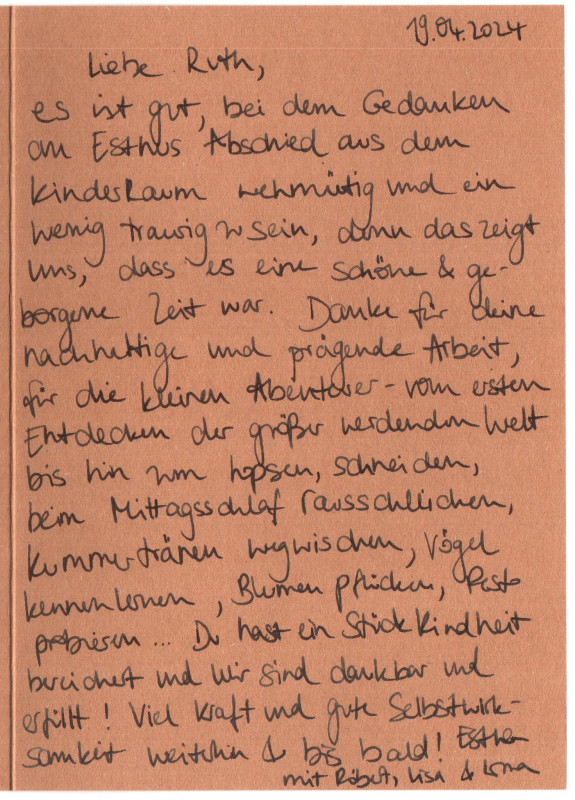 19.04.2024
Liebe Ruth,
es ist gut, bei dem Gedanken
an Esthers Abschied aus dem
KinderRaum wehmütig und ein
wenig traurig zu sein, denn das zeigt
uns, dass es eine schöne & ge-
borgene Zeit war. Danke für deine
nachhaltige und prägende Arbeit,
für die kleinen Abenteuer - vom ersten
Entdecken der größer werdenden Welt
bis hin zum hopsen, schneiden,
beim Mittagsschlaf rausschleichen,
Kummertränen wegwischen, Vögel
kennenlernen, Blumen pflücken,
probieren... Du hast ein Stück Kindheit
bereichert und wir sind dankbar und
erfüllt! Viel Kraft und gute Selbstwirk-
samkeit weiterhin & bis bald! Esther
mit Robert, Lisa &